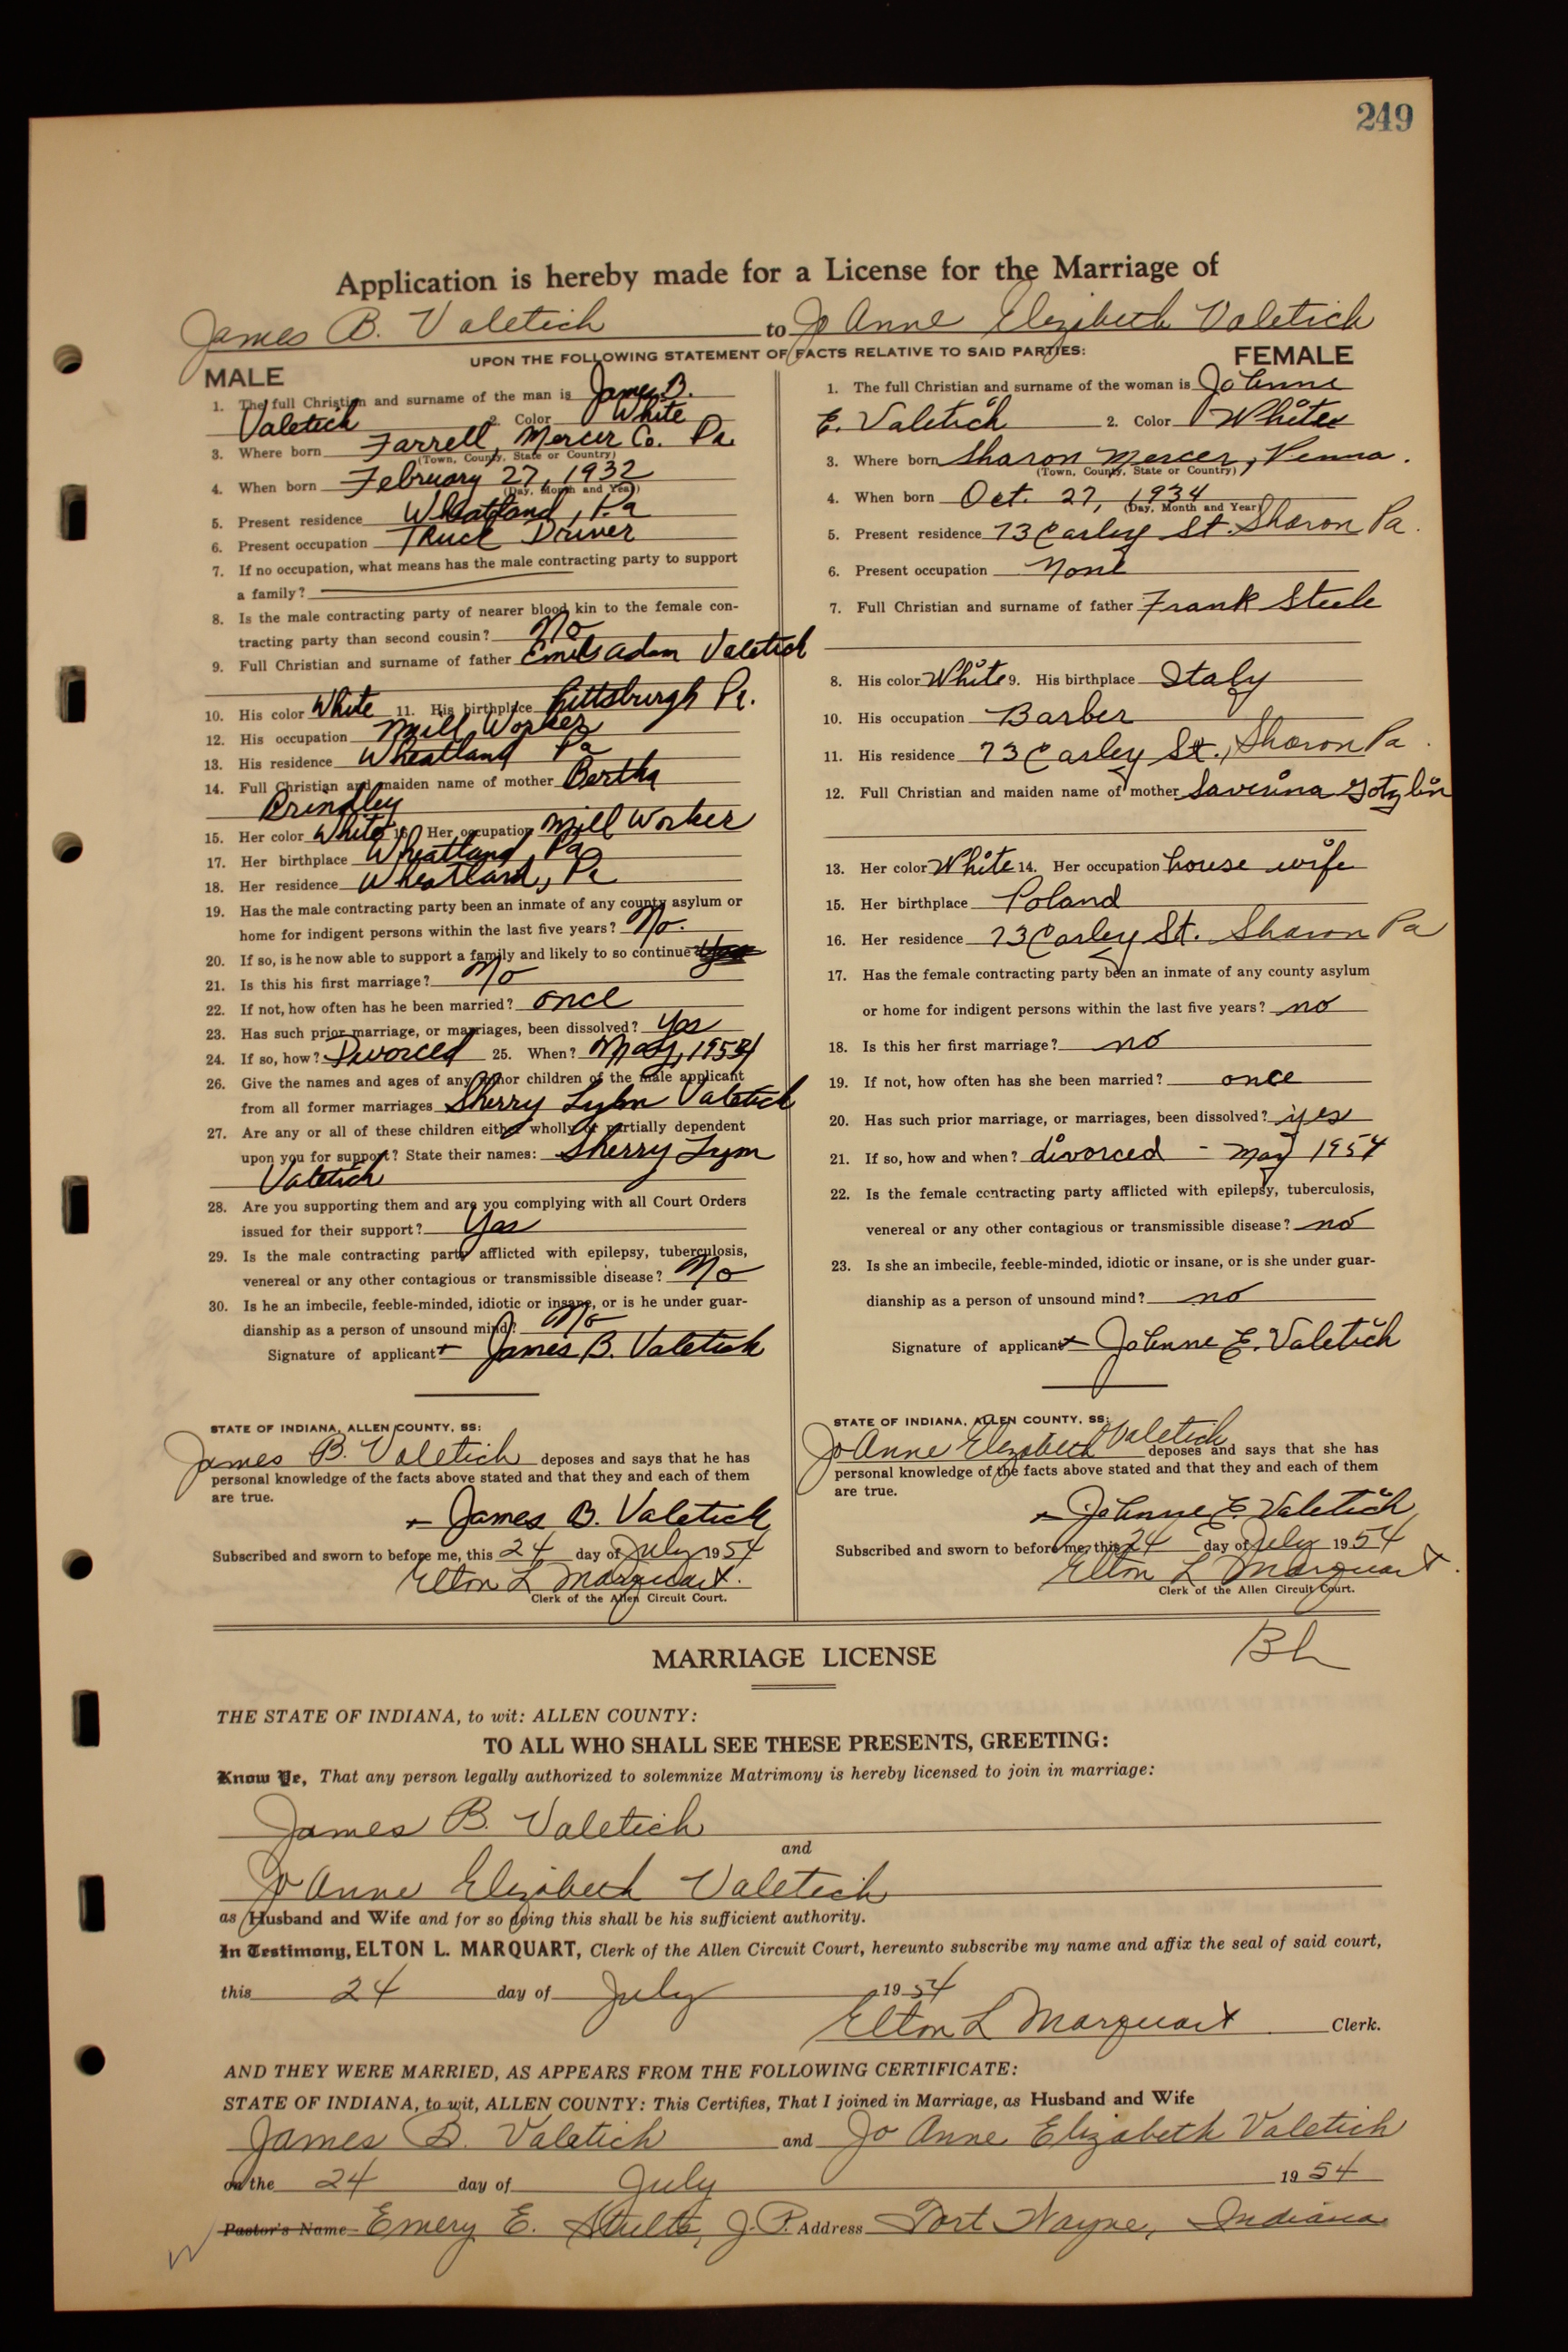 249
Application is hereby made for a License for the Marriage of
James B. Valetich to Jo Anne Elizabeth Valetich
UPON THE FOLLOWING STATEMENT OF FACTS RELATIVE TO SAID PARTIES:
MALE
1. The full Christian and surname of the man is James B.
Valetich 2. Color White
3. Where born Farrell, Mercer Co. Pa.
(Town, County, State or Country)
4. When born February 27, 1932
(Day, Month and Year)
5. Present residence Wheatland, Pa
6. Present occupation Truck Driver
7. If no occupation, what means has the male contracting party to support
a family?
8. Is the male contracting party of nearer blood kin to the female con-
tracting party than second cousin? No
9. Full Christian and surname of father Adam Valetich
10. His color White 11. His birthplace Pittsburgh Pa.
12. His occupation Mill Worker
13. His residence Wheatland Pa
14. Full Christian and maiden name of mother Bertha
Brindley
15. Her color White 16. Her occupation Mill Worker
17. Her birthplace Wheatland, Pa
18. Her residence Wheatland, Pa
19. Has the male contracting party been an inmate of any county asylum or
home for indigent persons within the last five years? No.
20. If so, is he now able to support a family and likely to so continue
21. Is this his first marriage? No
22. If not, how often has he been married? once
23. Has such prior marriage, or marriages, been dissolved? Yes
24. If so, how? Divorced 25. When? May, 1954
26. Give the names and ages of any minor children of the male applicant
from all former marriages Sherry Lynn Valetich
27. Are any or all of these children either wholly or partially dependent
upon you for support? State their names: Sherry Lynn
Valetich
28. Are you supporting them and are you complying with all Court Orders
issued for their support? Yes
29. Is the male contracting party afflicted with epilepsy, tuberculosis,
venereal or any other contagious or transmissible disease? No
30. Is he an imbecile, feeble-minded, idiotic or insane, or is he under guar-
dianship as a person of unsound mind? No
Signature of applicant x James B. Valetich
STATE OF INDIANA, ALLEN COUNTY, SS:
James B. Valetich deposes and says that he has
personal knowledge of the facts above stated and that they and each of them
are true.
x James B. Valetich
Subscribed and sworn to before me, this 24 day of July 1954
Elton L Marquart.
Clerk of the Allen Circuit Court.
FEMALE
1. The full Christian and surname of the woman is JoAnne
E. Valetich 2. Color White
3. Where born Sharon Mercer, Penna.
(Town, County, State or Country)
4. When born Oct. 27, 1934
(Day, Month and Year)
5. Present residence 73 Carley St. Sharon Pa.
6. Present occupation None
7. Full Christian and surname of father Frank Steele
8. His color White 9. His birthplace Italy
10. His occupation Barber
11. His residence 73 Carley St., Sharon Pa.
12. Full Christian and maiden name of mother Saverina
13. Her color White 14. Her occupation house wife
15. Her birthplace Poland
16. Her residence 73 Carley St. Sharon Pa
17. Has the female contracting party been an inmate of any county asylum
or home for indigent persons within the last five years? no
18. Is this her first marriage? no
19. If not, how often has she been married? once
20. Has such prior marriage, or marriages, been dissolved? yes
21. If so, how and when? divorced - May 1954
22. Is the female contracting party afflicted with epilepsy, tuberculosis,
venereal or any other contagious or transmissible disease? no
23. Is she an imbecile, feeble-minded, idiotic or insane, or is she under guar-
dianship as a person of unsound mind? no
Signature of applicant x JoAnne E. Valetich
STATE OF INDIANA, ALLEN COUNTY, SS:
JoAnne Elizabeth Valetich deposes and says that she has
personal knowledge of the facts above stated and that they and each of them
are true.
x JoAnne E. Valetich
Subscribed and sworn to before me, this 24 day of July 1954
Elton L Marquart
Clerk of the Allen Circuit Court.
Bh
MARRIAGE LICENSE
THE STATE OF INDIANA, to wit: ALLEN COUNTY:
TO ALL WHO SHALL SEE THESE PRESENTS, GREETING:
Know Ye, That any person legally authorized to solemnize Matrimony is hereby licensed to join in marriage:
James B. Valetich
and
Jo Anne Elizabeth Valetich
as Husband and Wife and for so doing this shall be his sufficient authority.
In Testimony, ELTON L. MARQUART, Clerk of the Allen Circuit Court, hereunto subscribe my name and affix the seal of said court,
this 24 day of July 1954
Elton L Marquart Clerk.
AND THEY WERE MARRIED, AS APPEARS FROM THE FOLLOWING CERTIFICATE:
STATE OF INDIANA, to wit, ALLEN COUNTY: This Certifies, That I joined in Marriage, as Husband and Wife
James B. Valetich and Jo Anne Elizabeth Valetich
on the 24 day of July 1954
Pastor's Name Emery E. Stults, J.P. Address Fort Wayne, Indiana